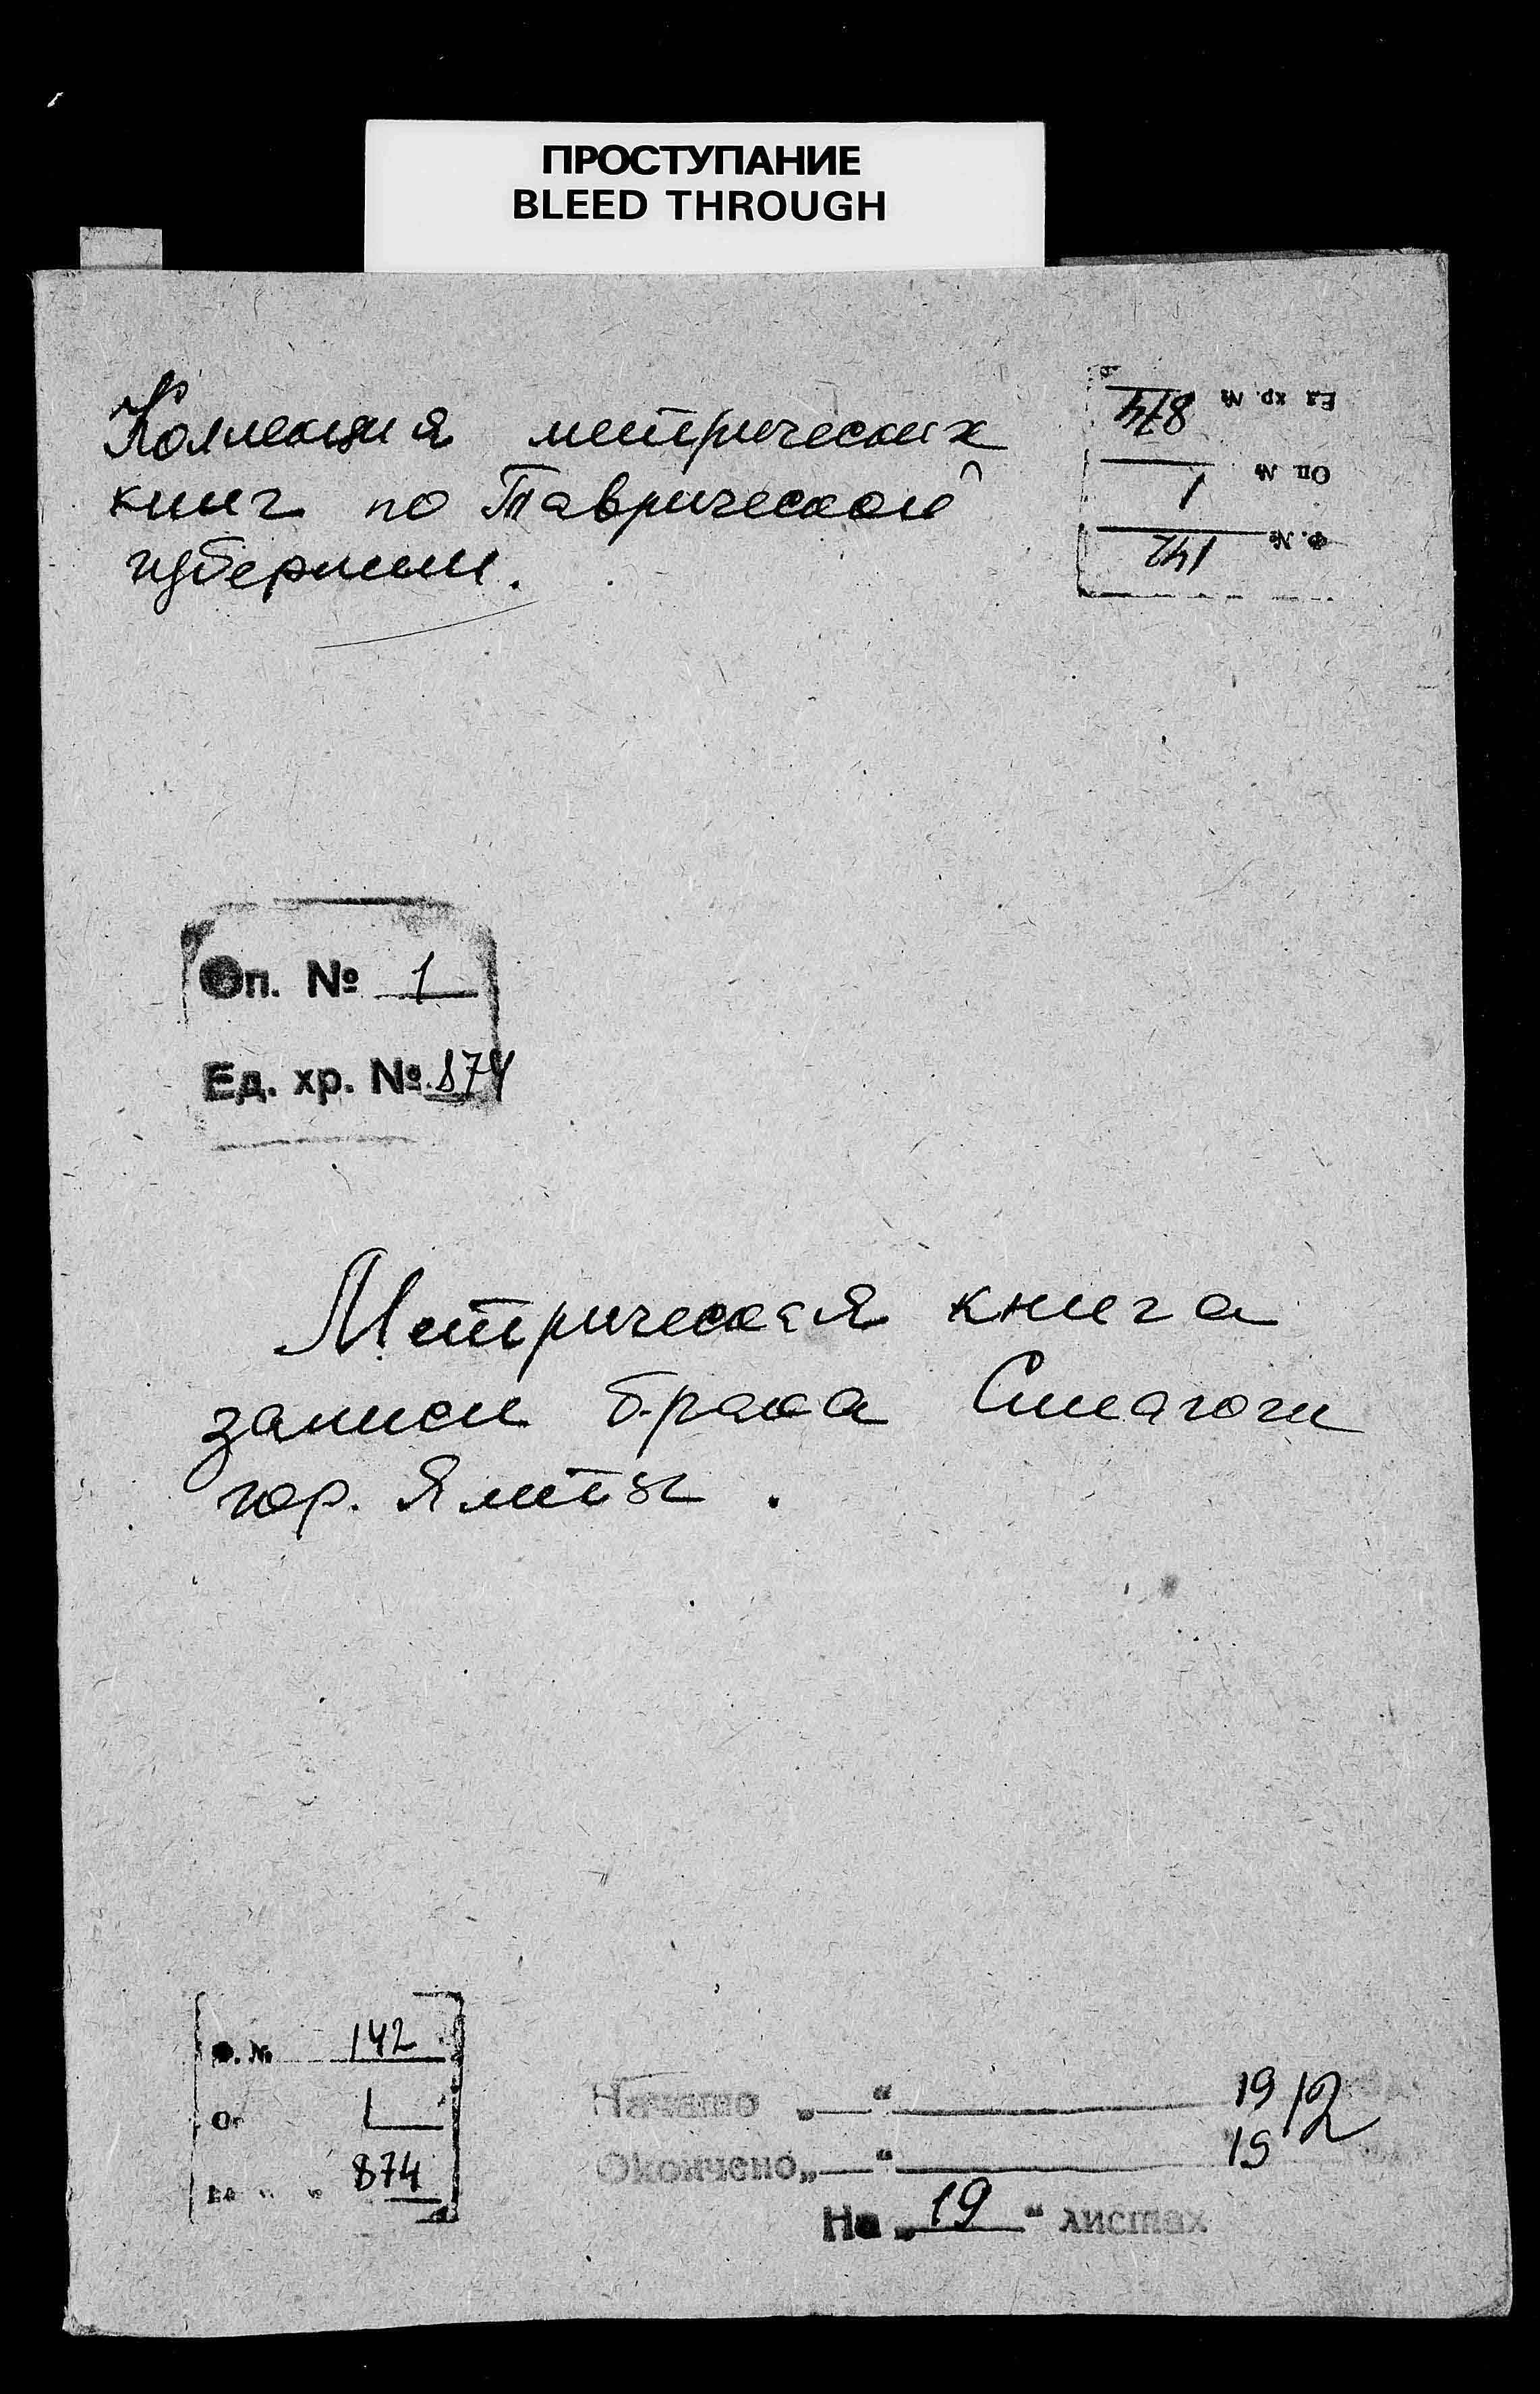 ПРОСТУПАНИЕ
BLEED THROUGH
Коллекция метрических
книг по Таврической
губернии.
Ед. хр. № 874
Оп. № 1
Ф. № 142
Оп. № 1
Ед. хр. № 874
Метрическая книга
записи брака Синагоги
гор. Ялты.
Ф. № 142
Оп 1
874
Начато „ “ 19 12
Окончено „ “ 19
На „ 19 “ листах